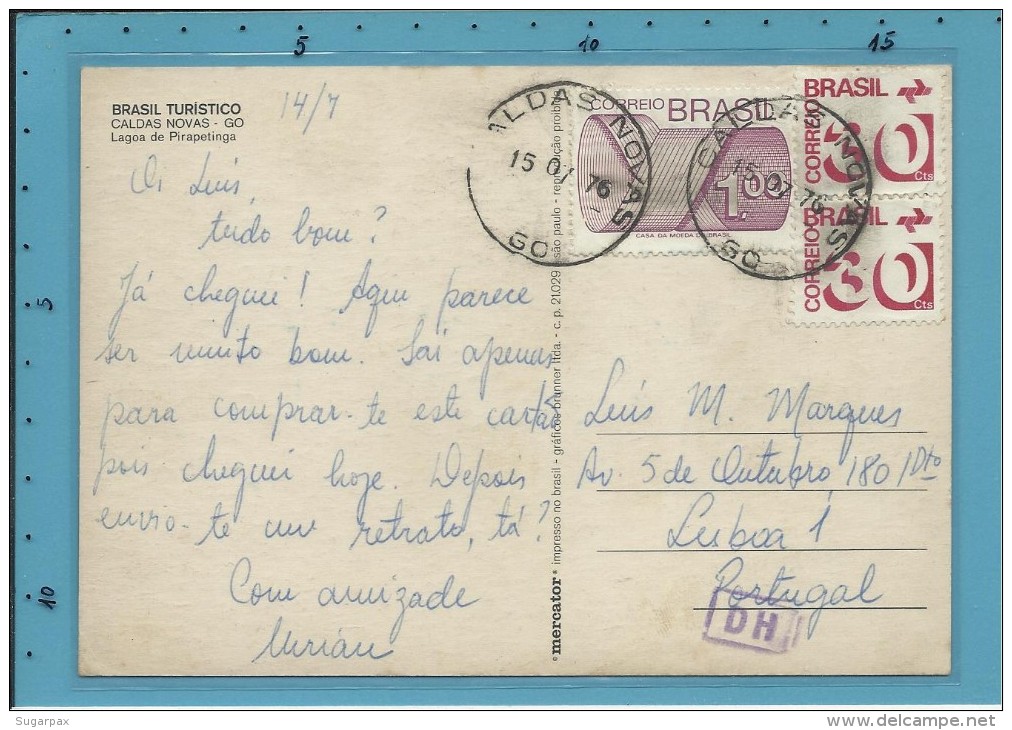 5
10
15
BRASIL TURÍSTICO
CALDAS NOVAS - GO
Lagoa de Pirapetinga
14/7
Oi Luís
tudo bom?
Já cheguei! Aqui parece
ser muito bom. Saí apenas
para comprar-te este cartão
pois cheguei hoje. Depois
envio-te um retrato, tá?
Com amizade
*mercator* impresso no brasil - gráficos brunner ltda. - c. p. 21.029 são paulo - reprodução proibida
CORREIO BRASIL
1.00
CASA DA MOEDA DO BRASIL
BRASIL
CORREIO
30
Cts
BRASIL
CORREIO
30
Cts
ALDAS NOVAS
15 07 76
GO
CALDAS NOVAS
15 07 76
GO
Luís M. Marques
Av. 5 de Outubro 180 1 Dto
Lisboa 1
Portugal
DH
5
10
Sugarpax
www.delcampe.net